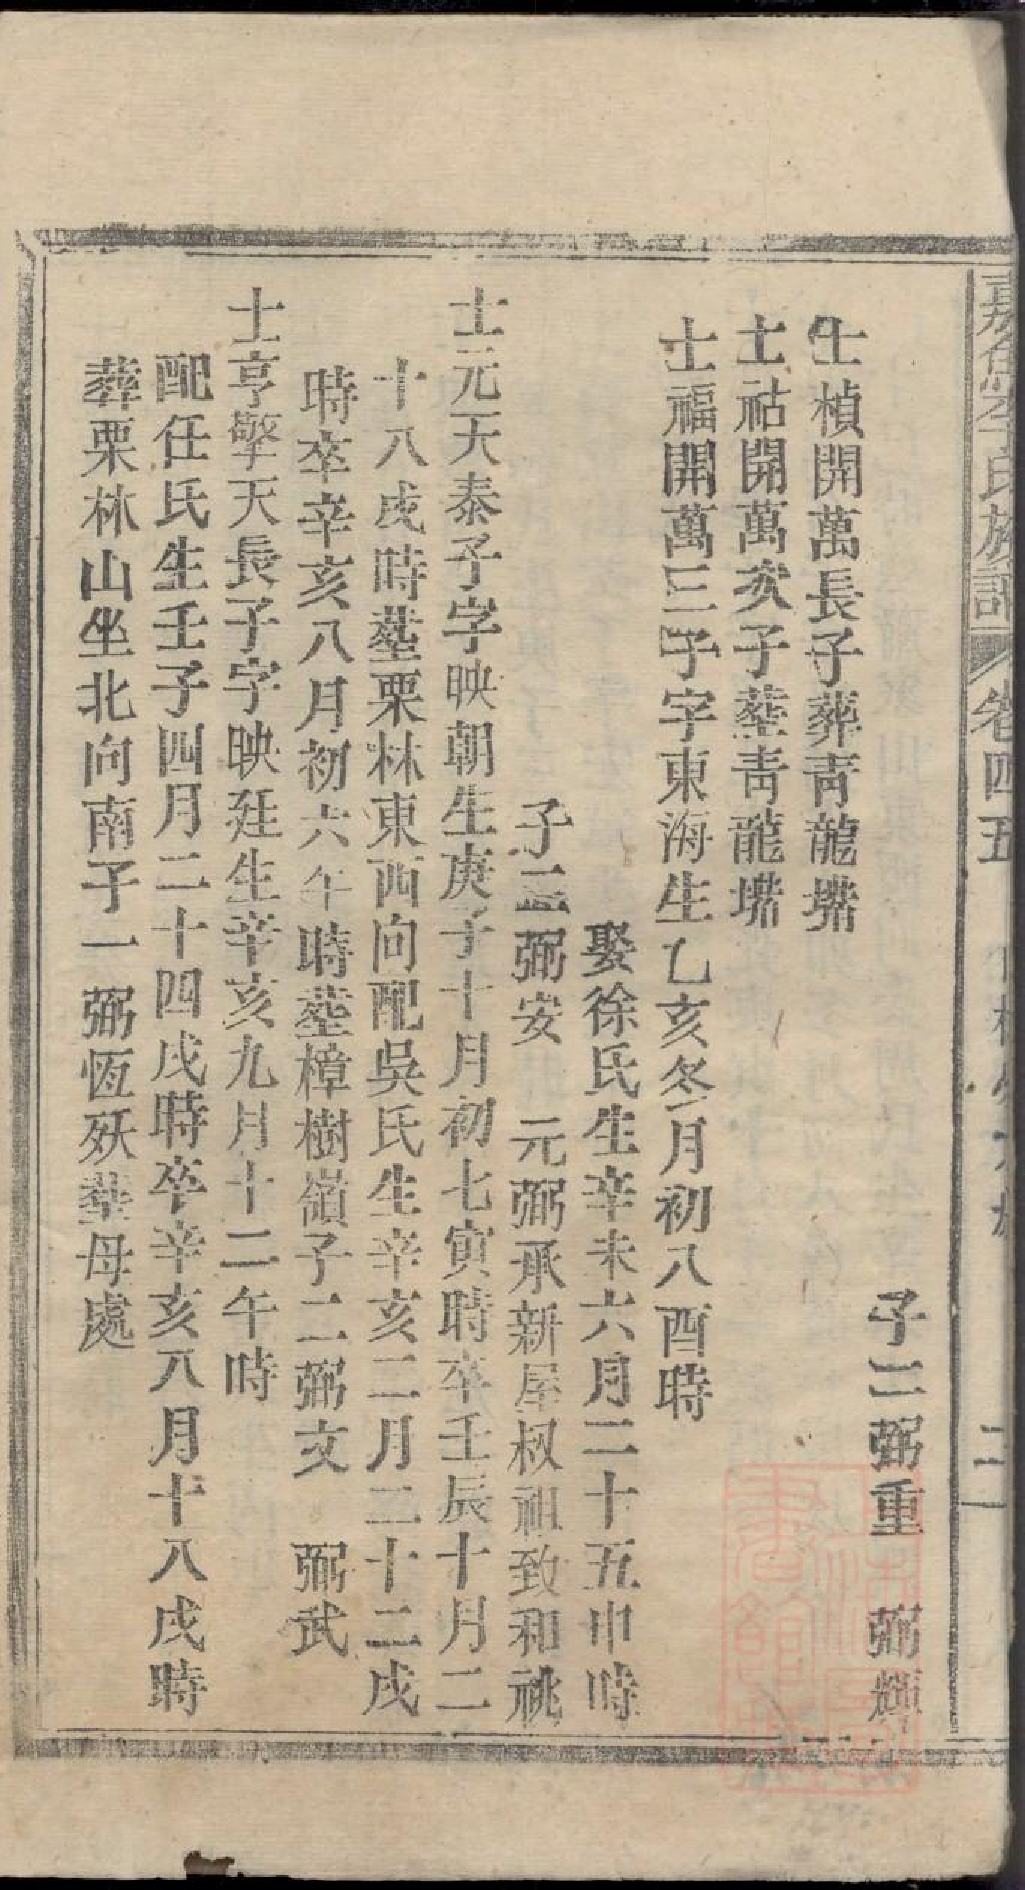 族譜 卷四五 二
子二弼重 弼輝
士楨開萬長子葬靑龍𡎺
士祜開萬次子塟靑龍𡎺
士福開萬三子字東海生乙亥冬月初八酉時
娶徐氏生辛未六月二十五申時
子二弼安 元弼承新屋叔祖致和祧
士元天泰子字映朝生庚子十月初七寅時卒壬辰十月二
十八戌時塟栗林東西向配吳氏生辛亥二月二十二戌
時卒辛亥八月初六午時塟樟樹嶺子二弼文 弼武
士亨擎天長子字映廷生辛亥九月十二午時
配任氏生壬子四月二十四戌時卒辛亥八月十八戌時
葬栗林山坐北向南子一弼恆殀塟母處